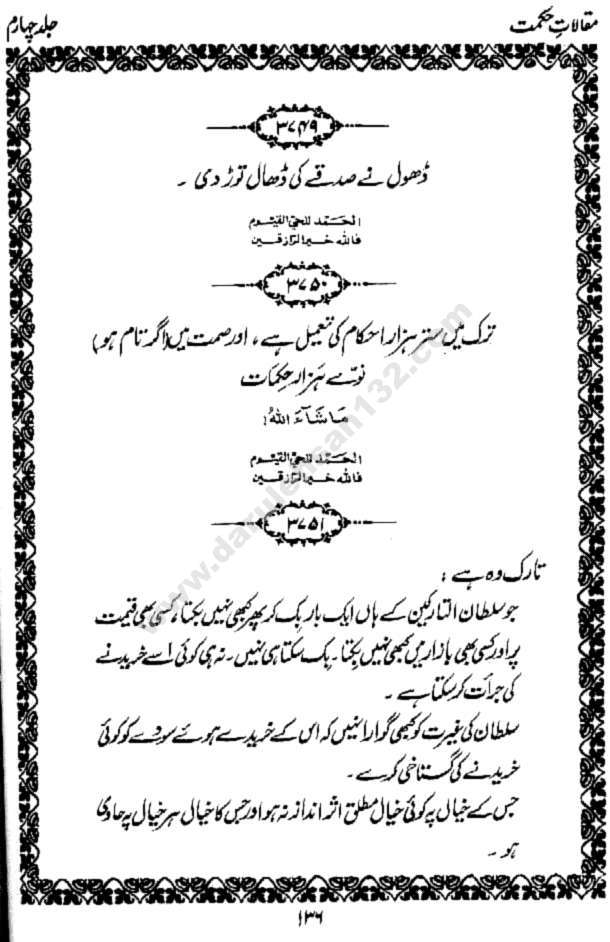 مقالاتِ حکمت
جلد چہارم
۳۷۴۹
ڈھول نے صدقے کی ڈھال توڑ دی ۔
الحَمد للحيّ القيّوم
فالله خير الرّازقين
۳۷۵۰
ترک میں ستر ہزار احکام کی تعمیل ہے ، اور صمت میں (اگر تام ہو)
نوّے ہزار حِکمات
مَا شَآءَ اللهُ !
الحَمد للحيّ القيّوم
فالله خير الرّازقين
۳۷۵۱
تارک وہ ہے :
جو سلطان التارکین کے ہاں ایک بار بِک کر پھر کبھی نہیں بکتا ، کسی بھی قیمت
پر اور کسی بھی بازار میں کبھی نہیں بِکتا ۔ بِک سکتا ہی نہیں ۔ نہ ہی کوئی اسے خریدنے
کی جرأت کر سکتا ہے ۔
سلطان کی غیرت کو کبھی گوارا نہیں کہ اس کے خریدے ہوئے سودے کو کوئی
خریدنے کی گستاخی کرے ۔
جس کے خیال پہ کوئی خیال مطلق اثر انداز نہ ہو اور جس کا خیال ہر خیال پہ حاوی
ہو ۔
۱۳۶
www.darulehsan132.com